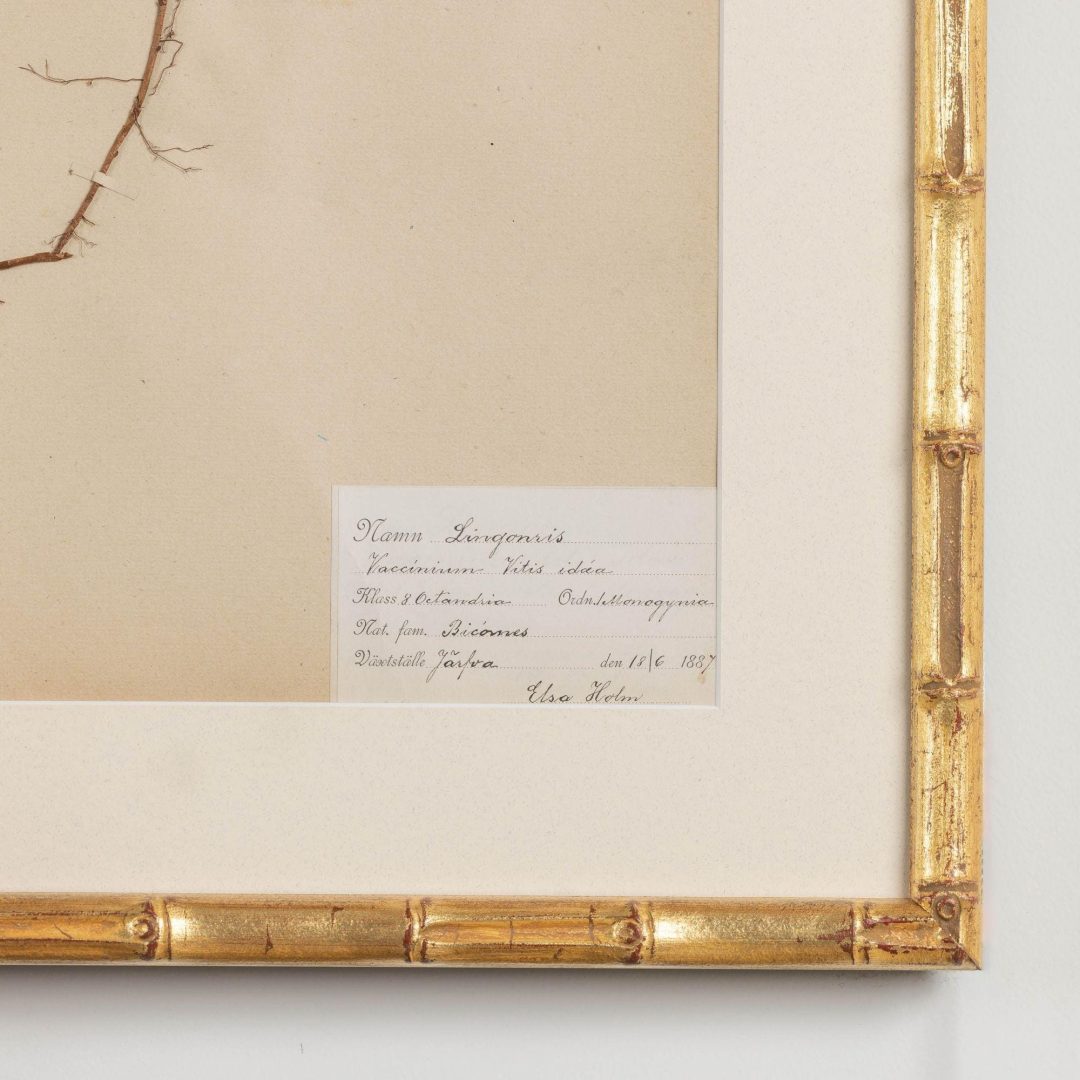 Namn Lingonris
Vaccinium Vitis idáa
Klass 8 Octandria Ordn. 1 Monogynia
Nat. fam. Bicórnes
Växtställe Järfva den 18/6 1887
Elsa Holm